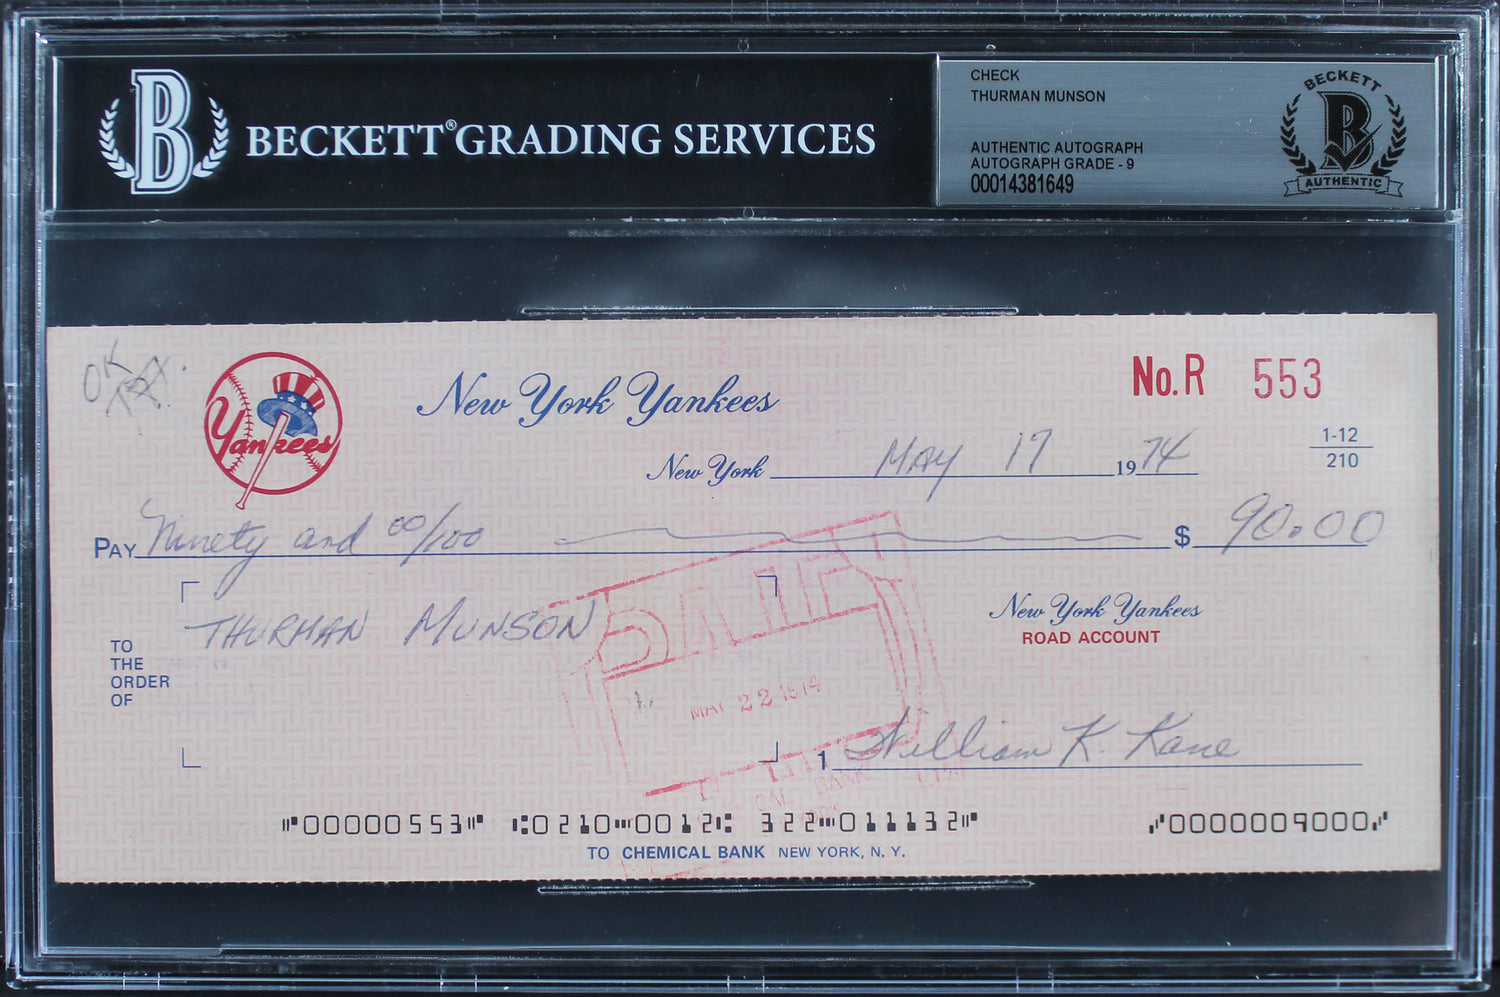 BECKETT® GRADING SERVICES
CHECK
THURMAN MUNSON
AUTHENTIC AUTOGRAPH
AUTOGRAPH GRADE - 9
00014381649
BECKETT
B
AUTHENTIC
OK
Yankees
New York Yankees
No. R 553
New York MAY 17 1974
1-12
210
PAY Ninety and 00/100 $ 90.00
THURMAN MUNSON
TO
THE
ORDER
OF
New York Yankees
ROAD ACCOUNT
PAID
MAY 22 1974
1 William K. Kane
BANK
⑈00000553⑈ ⑆0210⑉0012⑆ 322⑉011132⑈ ⑇0000009000⑇
TO CHEMICAL BANK NEW YORK, N. Y.